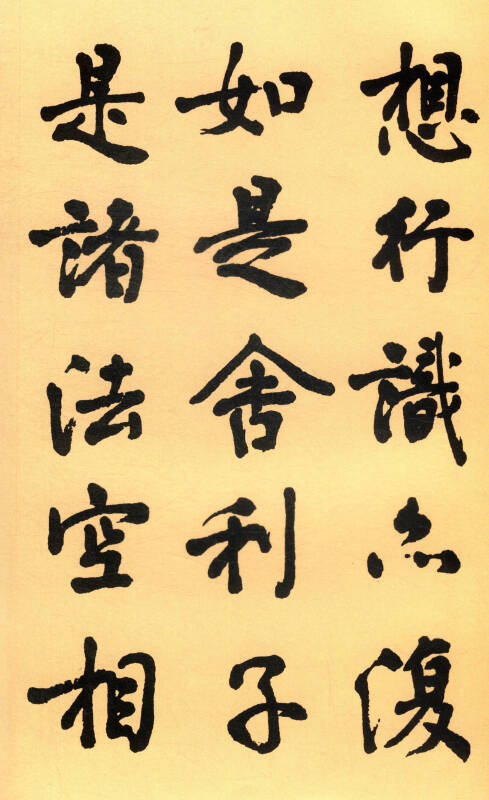 想行識亦復
如是舍利子
是諸法空相